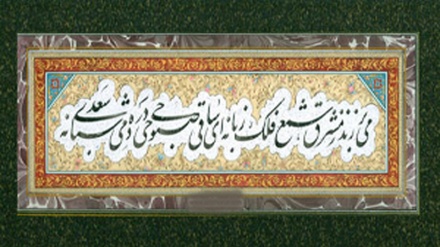 می برزند ز مشرق شمع فلک زبانه ای ساقی صبوحی درده می شبانه سعدی